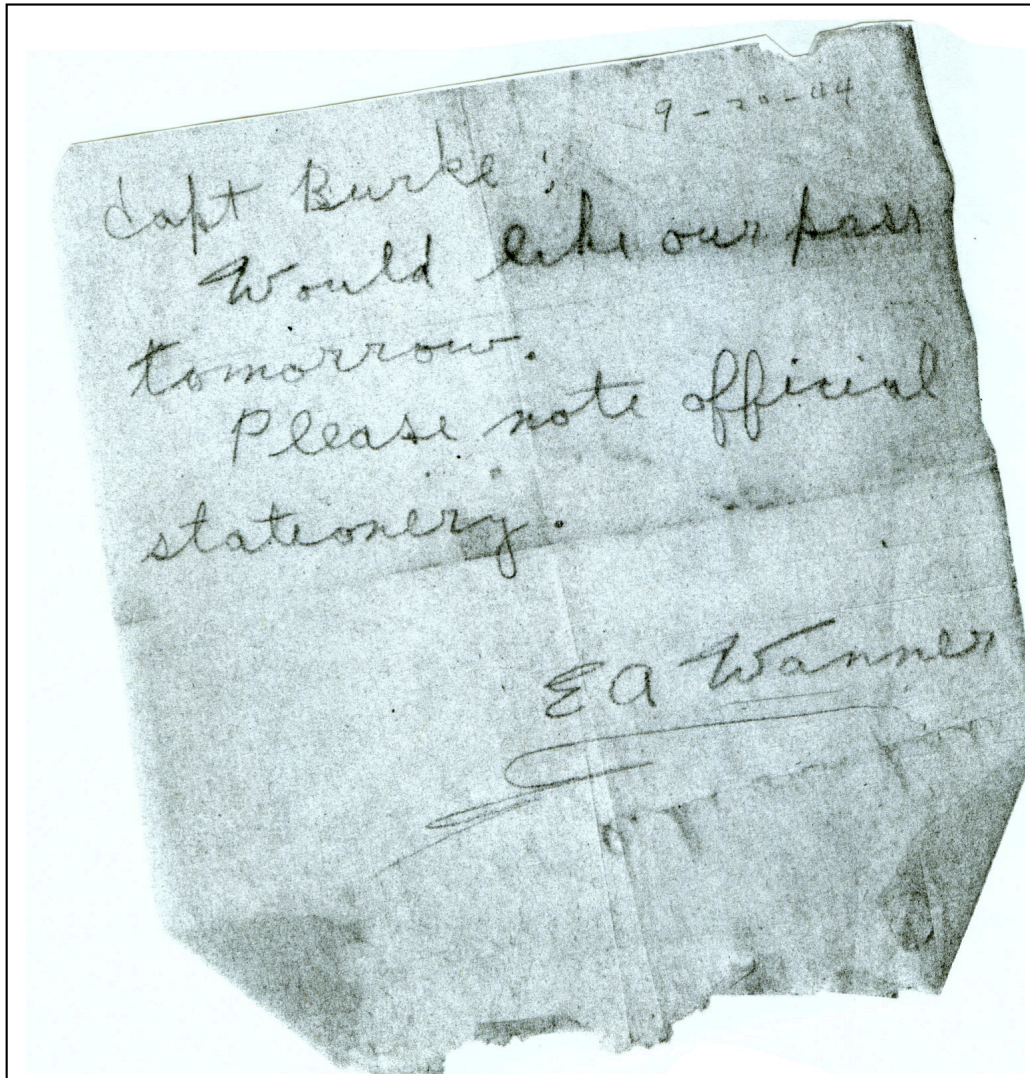 9-20-44
Capt Burke:
Would like our pass
tomorrow.
Please note official
stationery.
EA Wanner